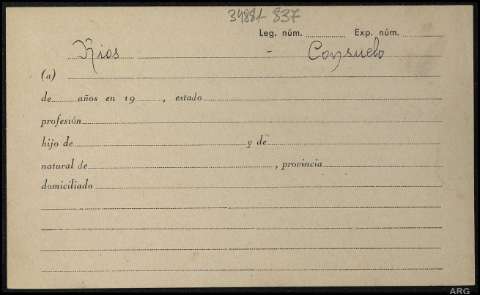 34881-837
Leg. núm. Exp. núm.
Rios - Consuelo
(a)
de años en 19 , estado
profesión
hijo de y de
natural de , provincia
domiciliado
ARG